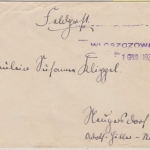 Feldpost
WLOSZCZOWA
Fräulein Susanne Klippel
Neugersdorf
Adolf-Hitler-